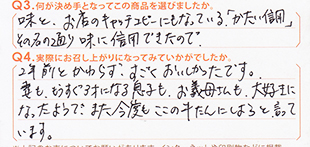 Q3.何が決め手となってこの商品を選びましたか。
味と、お店のキャッチコピーにもなっている「かたい信用」
その名の通り味に信用できたので
Q4.実際にお召し上がりになってみていかがでしたか。
2年前とかわらず、すごくおいしかったです。
妻も、もうすぐ3才になる息子も、お義母さんも、大好きに
なったようで、また今度もここの牛たんにしようと言って
います。